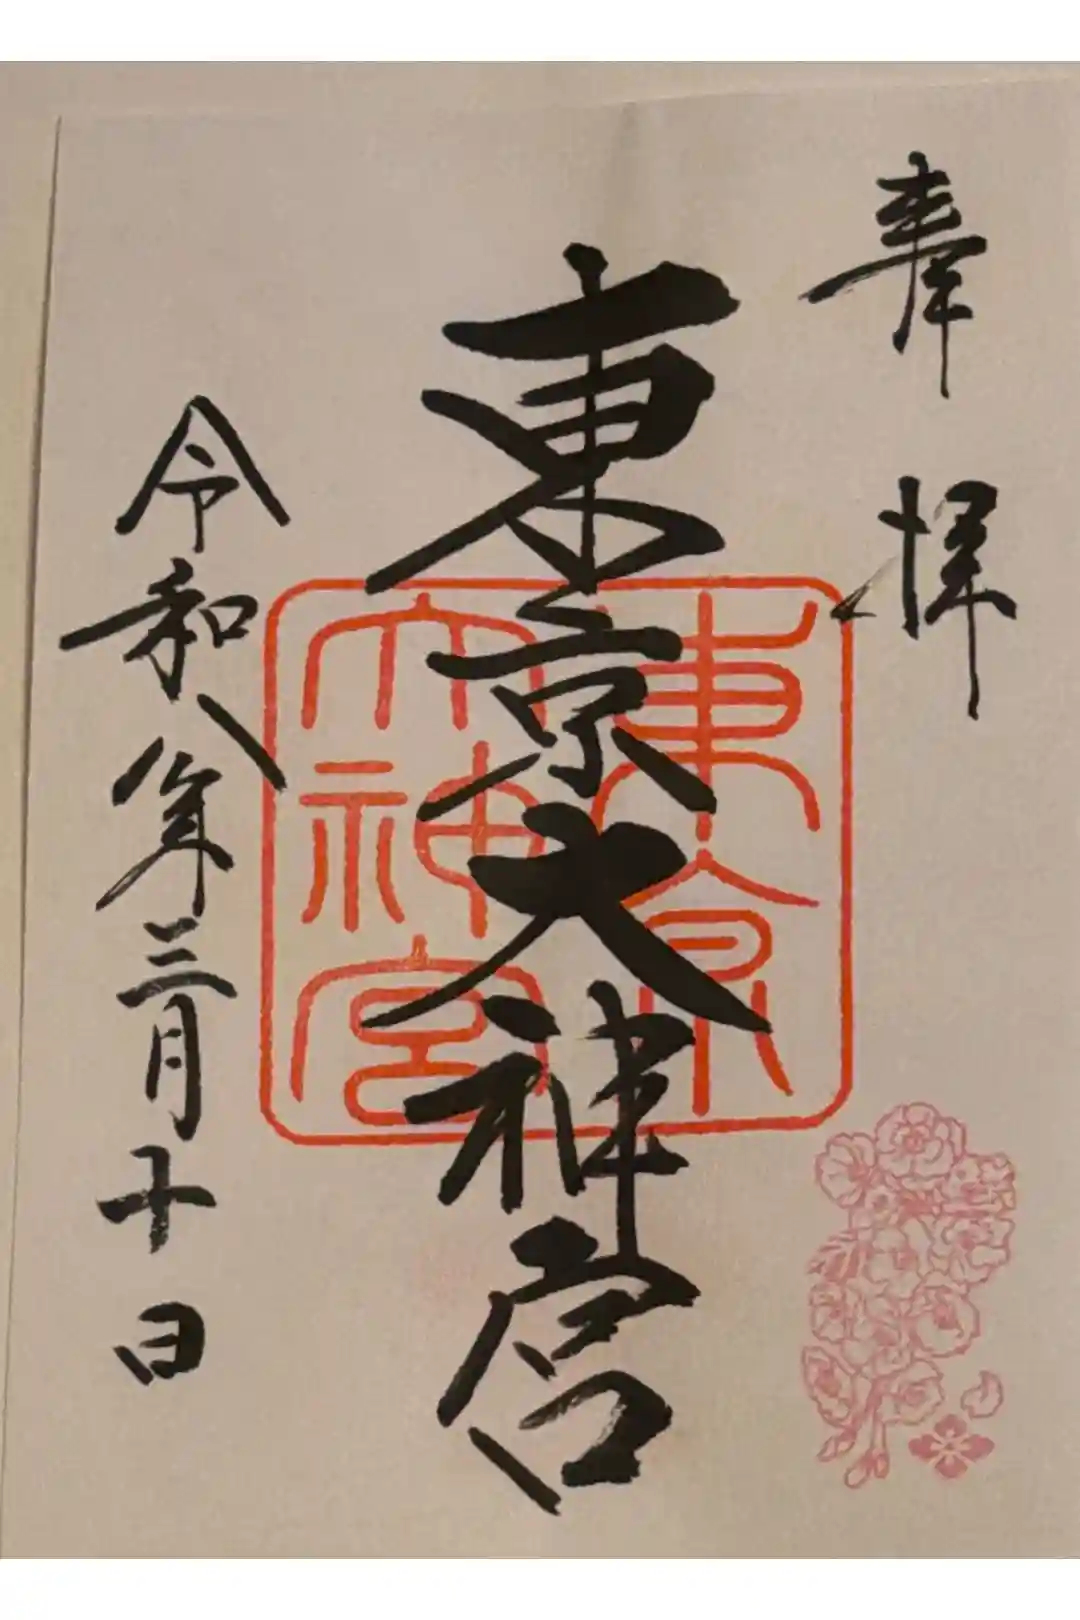 奉拝
東京大神宮
東京
大神宮
令和八年三月十日